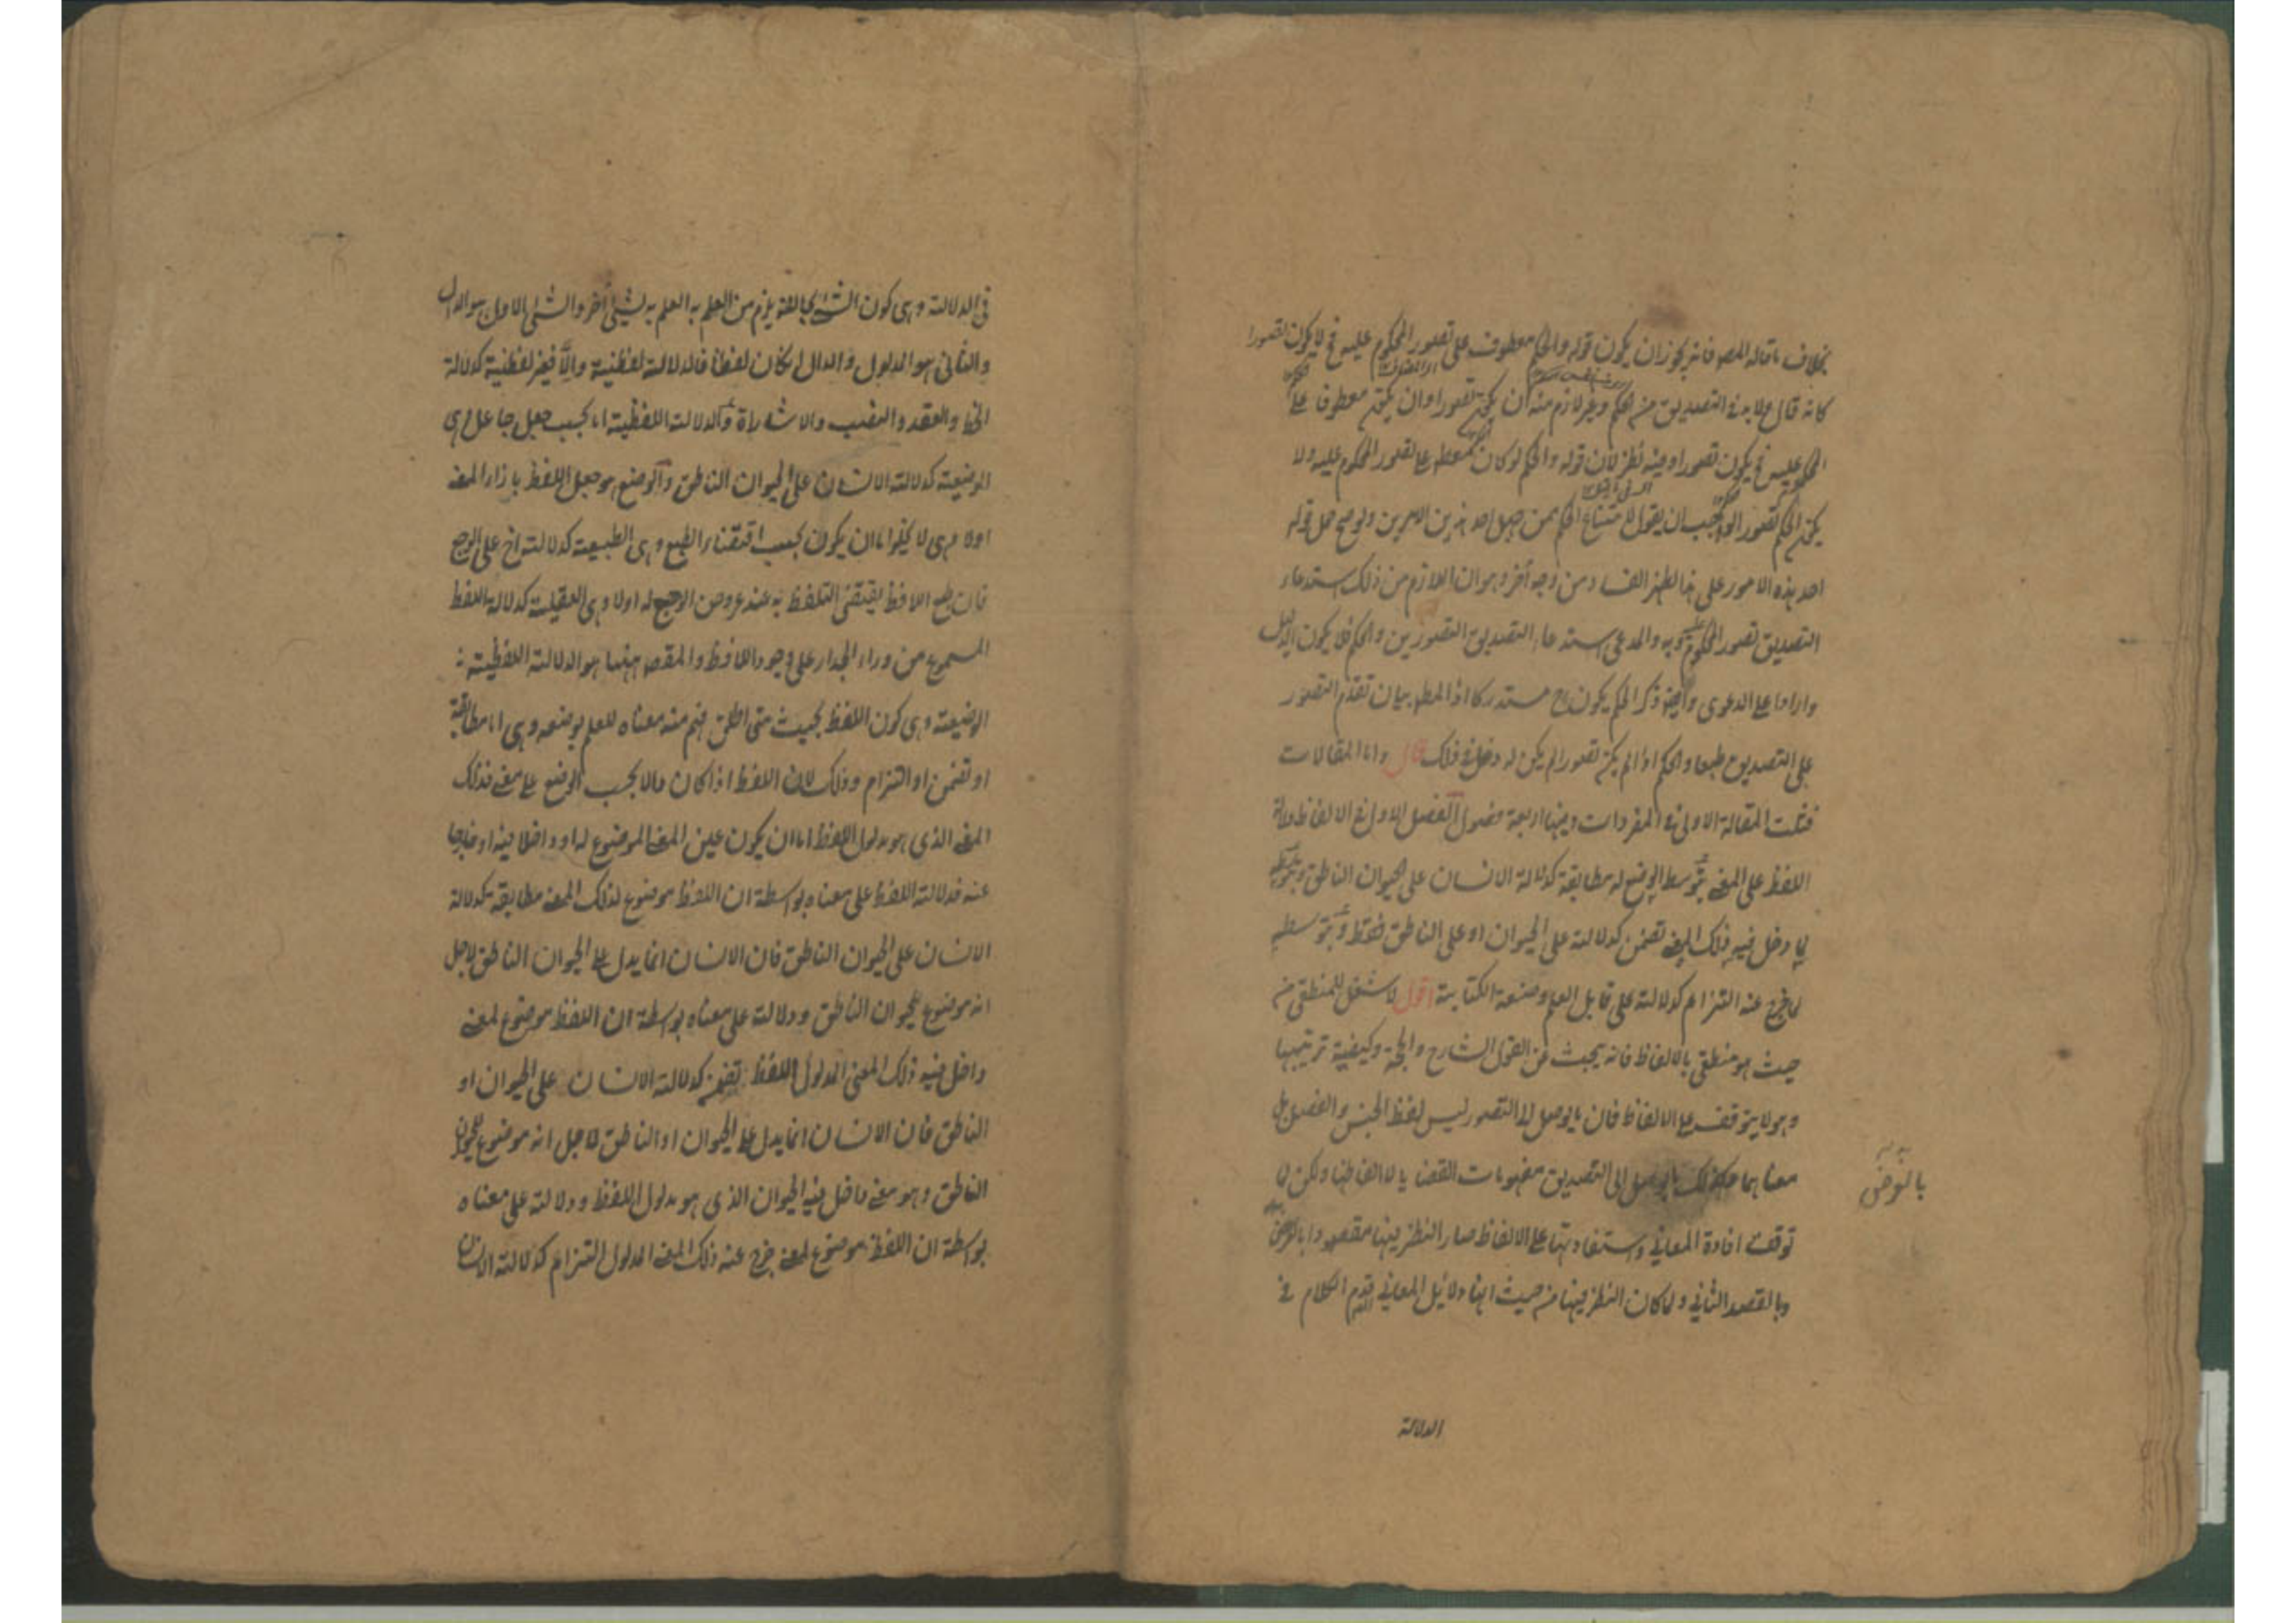 بخلاف ما قاله المصـ فانه يجوز ان يكون قوله والحكم معطوف على تصور المحكوم عليه فح لا يكون تصورا
كانه قال ولا بد فى التصديق من الحكم وغير لازم منه ان يكون تصورا وان يكون معطوفا على
المحكوم عليه فح يكون تصورا وفيه نظر لان قوله والحكم لو كان معطوفا على تصور المحكوم عليه ولا
يكون الحكم تصورا لوجب ان يقول لامتناع الحكم ممن جهل احد هذين الامرين ولو صح حمل قوله
احد هذه الامور على هذا لظهر الفساد من وجه آخر وهو ان اللازم من ذلك استدعاء
التصديق تصور المحكوم عليه وبه والمدعى استدعاء التصديق التصورين والحكم فلا يكون الدليل
واردا على الدعوى وايضا ذكر الحكم يكون ح مستدركا اذ المطـ بيان تقدم التصور
على التصديق طبعا والحكم اذا لم يكن تصورا لم يكن له دخل فى ذلك قال واما المقالات
فثلث المقالة الاولى فى المفردات وفيها اربعة فصول الفصل الاول فى الالفاظ دلالة
اللفظ على المعنى بتوسط الوضع له مطابقة كدلالة الانسان على الحيوان الناطق وبتوسطه
لما دخل فيه ذلك المعنى تضمن كدلالته على الحيوان او على الناطق فقط وبتوسطه
لما خرج عنه التزام كدلالته على قابل العلم وصنعة الكتابة اقول لا شغل للمنطقى من
حيث هو منطقى بالالفاظ فانه يبحث عن القول الشارح والحجة وكيفية ترتيبها
وهو لا يتوقف على الالفاظ فان ما يوصل الى التصور ليس لفظ الجنس والفصل بل
معناهما وكذلك ما يوصل الى التصديق مفهومات القضايا لا الفاظها ولكن لما
توقف افادة المعانى واستفادتها على الالفاظ صار النظر فيها مقصودا بالعرض
بالعرض
وبالقصد الثانى ولما كان النظر فيها من حيث انها دلايل المعانى قدم الكلام فى
الدلالة
فى الدلالة وهى كون الشئ بحالة يلزم من العلم به العلم بشئ آخر والشئ الاول هو الدال
والثانى هو المدلول والدال ان كان لفظا فالدلالة لفظية والا فغير لفظية كدلالة
الخط والعقد والنصب والاشارة والدلالة اللفظية اما بحسب جعل جاعل وهى
الوضعية كدلالة الانسان على الحيوان الناطق والوضع هو جعل اللفظ بازاء المعنى
اولا وهى لا يخلو اما ان يكون بحسب اقتضاء الطبع وهى الطبيعية كدلالة اخ على الوجع
فان طبع اللافظ يقتضى التلفظ به عند عروض الوجع له اولا وهى العقلية كدلالة اللفظ
المسموع من وراء الجدار على وجود اللافظ والمقصـ ههنا هو الدلالة اللفظية
الوضعية وهى كون اللفظ بحيث متى اطلق فهم منه معناه للعلم بوضعه وهى اما مطابقة
او تضمن او التزام وذلك لان اللفظ اذا كان دالا بحسب الوضع على معنى فذلك
المعنى الذى هو مدلول اللفظ اما ان يكون عين المعنى الموضوع له او داخلا فيه او خارجا
عنه فدلالة اللفظ على معناه بواسطة ان اللفظ موضوع لذلك المعنى مطابقة كدلالة
الانسان على الحيوان الناطق فان الانسان انما يدل على الحيوان الناطق لاجل
انه موضوع للحيوان الناطق ودلالته على معناه بواسطة ان اللفظ موضوع لمعنى
داخل فيه ذلك المعنى المدلول اللفظ تضمن كدلالة الانسان على الحيوان او
الناطق فان الانسان انما يدل على الحيوان او الناطق لاجل انه موضوع للحيوان
الناطق وهو معنى داخل فيه الحيوان الذى هو مدلول اللفظ ودلالته على معناه
بواسطة ان اللفظ موضوع لمعنى خرج عنه ذلك المعنى المدلول التزام كدلالة الانسان